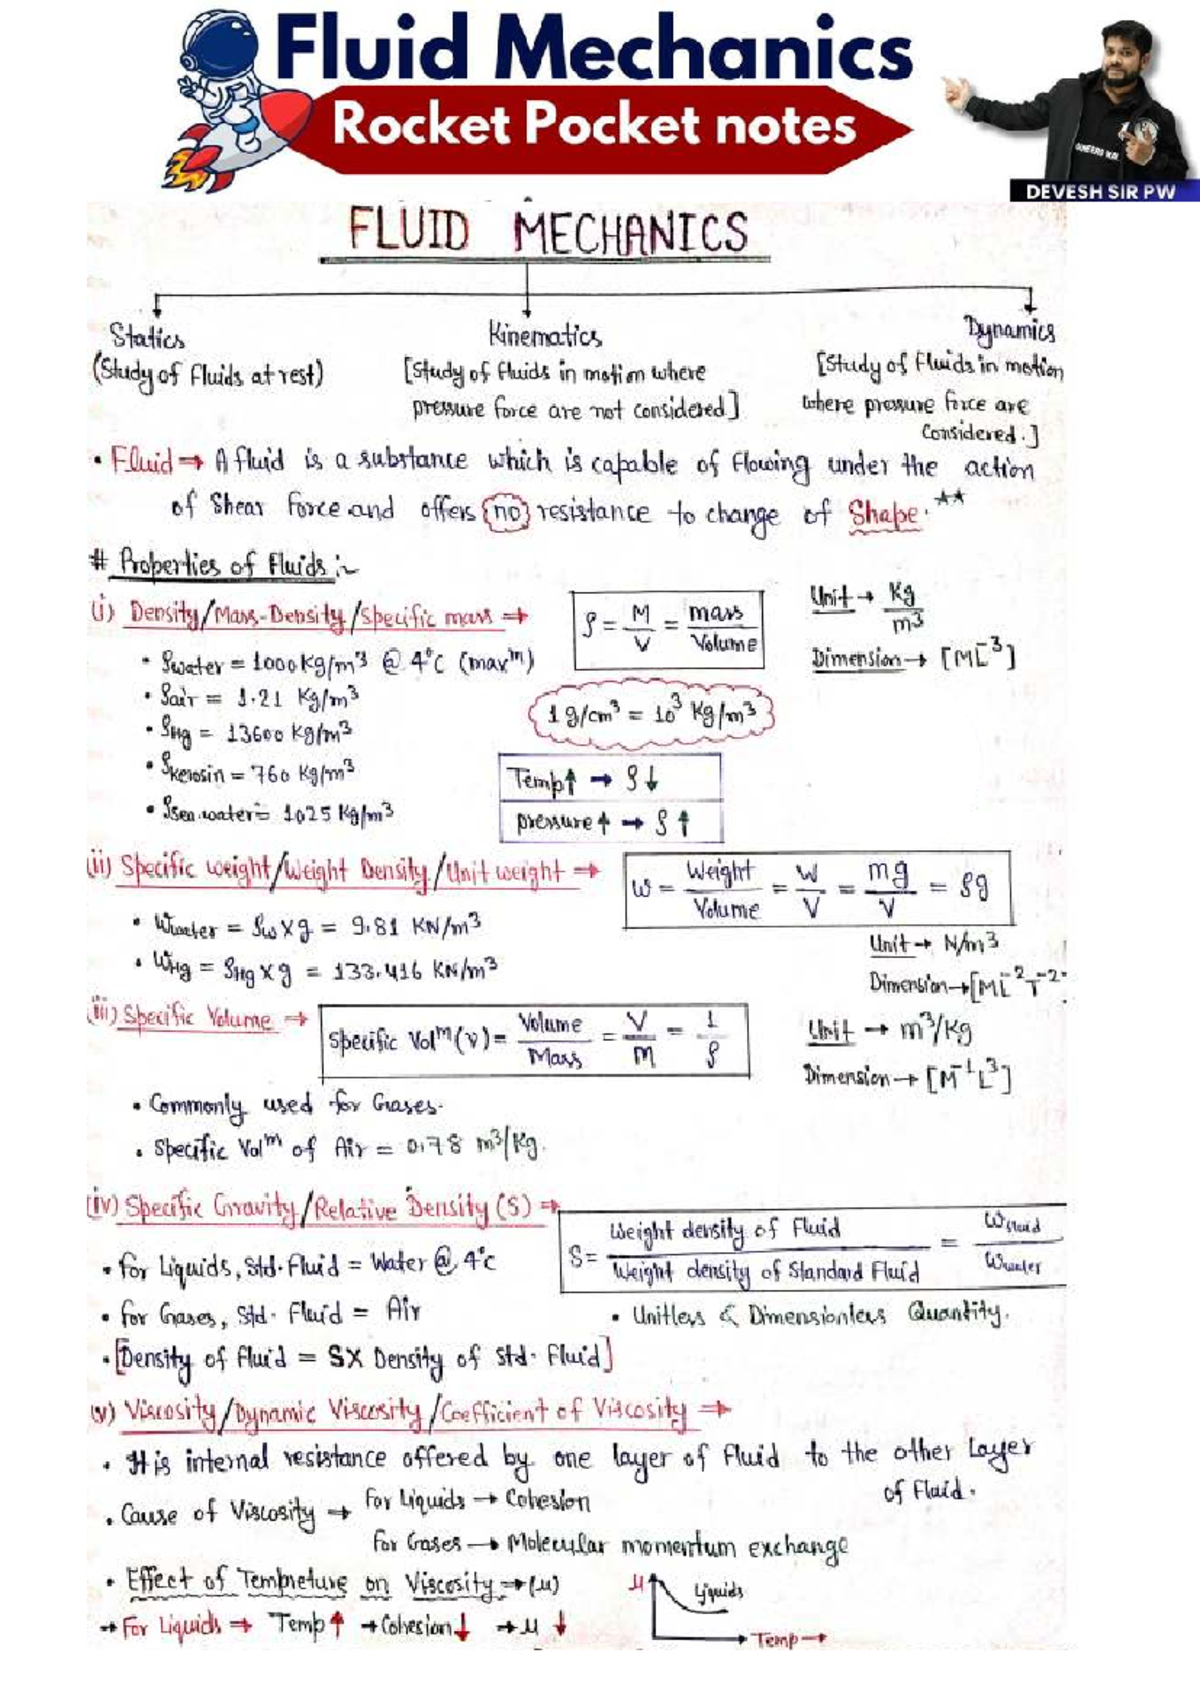 Fluid Mechanics
Rocket Pocket notes
DEVESH SIR PW
FLUID MECHANICS
Statics Kinematics Dynamics
(Study of Fluids at rest) [Study of fluids in motion where pressure force are not considered] [Study of Fluids in motion where pressure force are Considered.]
• Fluid → A fluid is a substance which is capable of flowing under the action
of Shear force and offers no resistance to change of Shape. **
# Properties of Fluids :-
(i) Density/Mass-Density/Specific mass → ρ = M/V = mass/Volume Unit → Kg/m³
Dimension → [ML⁻³]
• ρwater = 1000 kg/m³ @ 4°C (maxᵐ)
• ρair = 1.21 Kg/m³
1 g/cm³ = 10³ Kg/m³
• ρHg = 13600 kg/m³
• ρkerosin = 760 Kg/m³
Temp↑ → ρ↓
• ρsea.water = 1025 Kg/m³
pressure↑ → ρ↑
(ii) Specific weight/Weight Density/Unit weight → w = Weight/Volume = W/V = mg/V = ρg
• Wwater = ρw x g = 9.81 KN/m³
Unit → N/m³
• WHg = ρHg x g = 133.416 KN/m³
Dimension → [ML⁻²T⁻²
(iii) Specific Volume → Specific Volᵐ(v) = Volume/Mass = V/m = 1/ρ Unit → m³/Kg
Dimension → [M⁻¹L³]
• Commonly used for Gases.
• Specific Volᵐ of Air = 0.78 m³/Kg.
(iv) Specific Gravity/Relative Density (S) → S = Weight density of Fluid/Weight density of Standard Fluid = Wfluid/Wwater
• for Liquids, Std. Fluid = Water @ 4°C
• for Gases, Std. Fluid = Air • Unitless & Dimensionless Quantity.
• [Density of fluid = S X Density of Std. Fluid]
(v) Viscosity/Dynamic Viscosity/Coefficient of Viscosity →
• It is internal resistance offered by one layer of Fluid to the other Layer
of Fluid.
• Cause of Viscosity → For Liquids → Cohesion
For Gases → Molecular momentum exchange
• Effect of Tempreture on Viscosity → (μ)
μ Liquids
→ For Liquids → Temp↑ → Cohesion↓ → μ ↓
Temp →